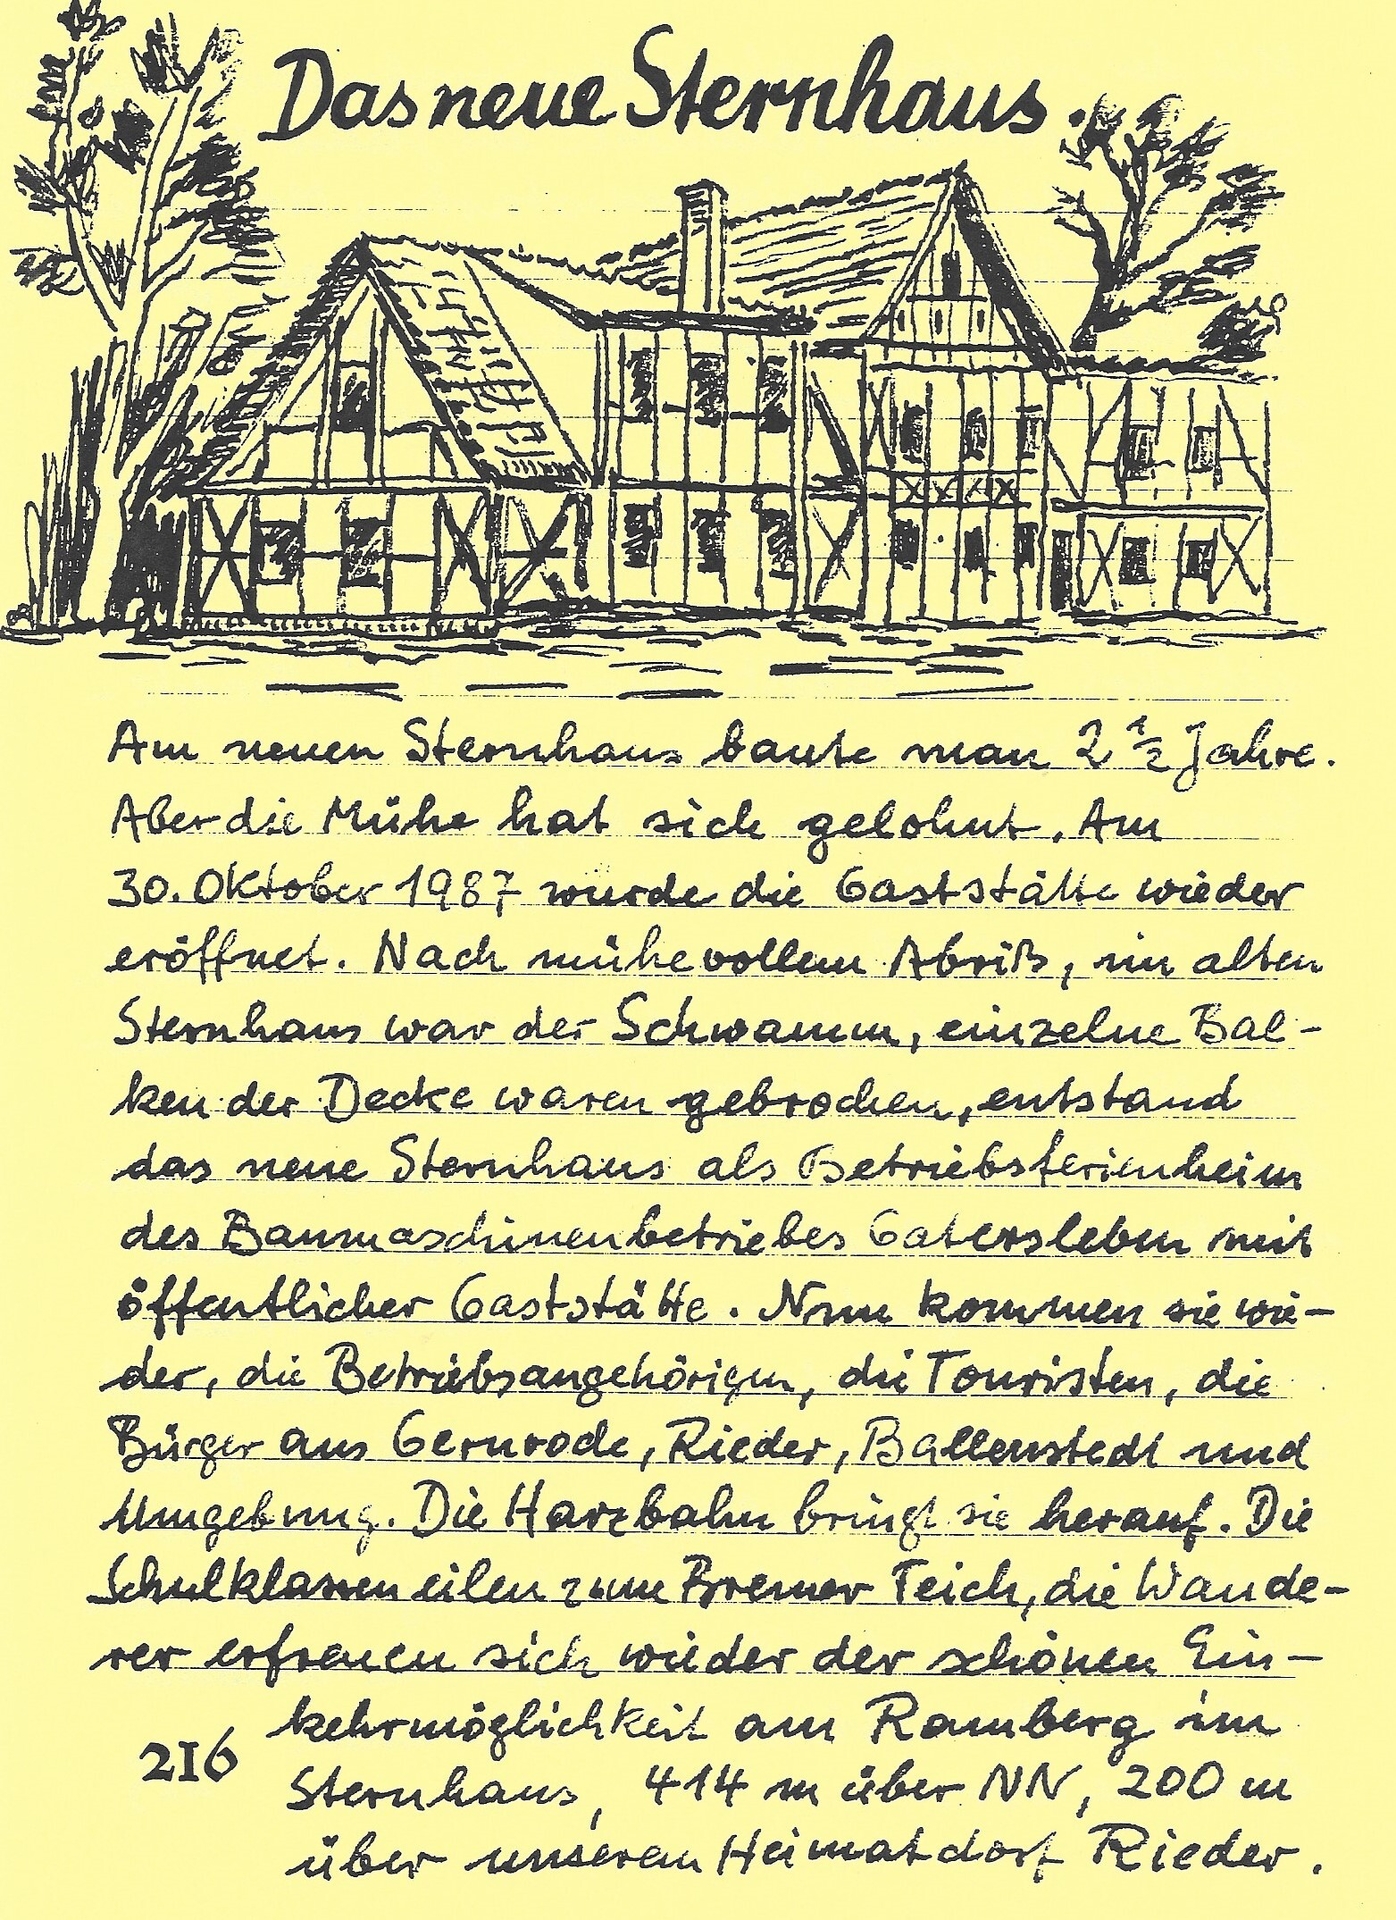 Das neue Sternhaus.
Am neuen Sternhaus baute man 2 1/2 Jahre.
Aber die Mühe hat sich gelohnt. Am
30. Oktober 1987 wurde die Gaststätte wieder
eröffnet. Nach mühevollem Abriß, im alten
Sternhaus war der Schwamm, einzelne Bal-
ken der Decke waren gebrochen, entstand
das neue Sternhaus als Betriebsferienheim
des Baumaschinenbetriebes Gatersleben mit
öffentlicher Gaststätte. Nun kommen sie wie-
der, die Betriebsangehörigen, die Touristen, die
Bürger aus Gernrode, Rieder, Ballenstedt und
Umgebung. Die Harzbahn bringt sie herauf. Die
Schulklassen eilen zum Bremer Teich, die Wande-
rer erfreuen sich wieder der schönen Ein-
kehrmöglichkeit am Ramberg im
Sternhaus, 414 m über NN, 200 m
über unserem Heimatdorf Rieder.
216